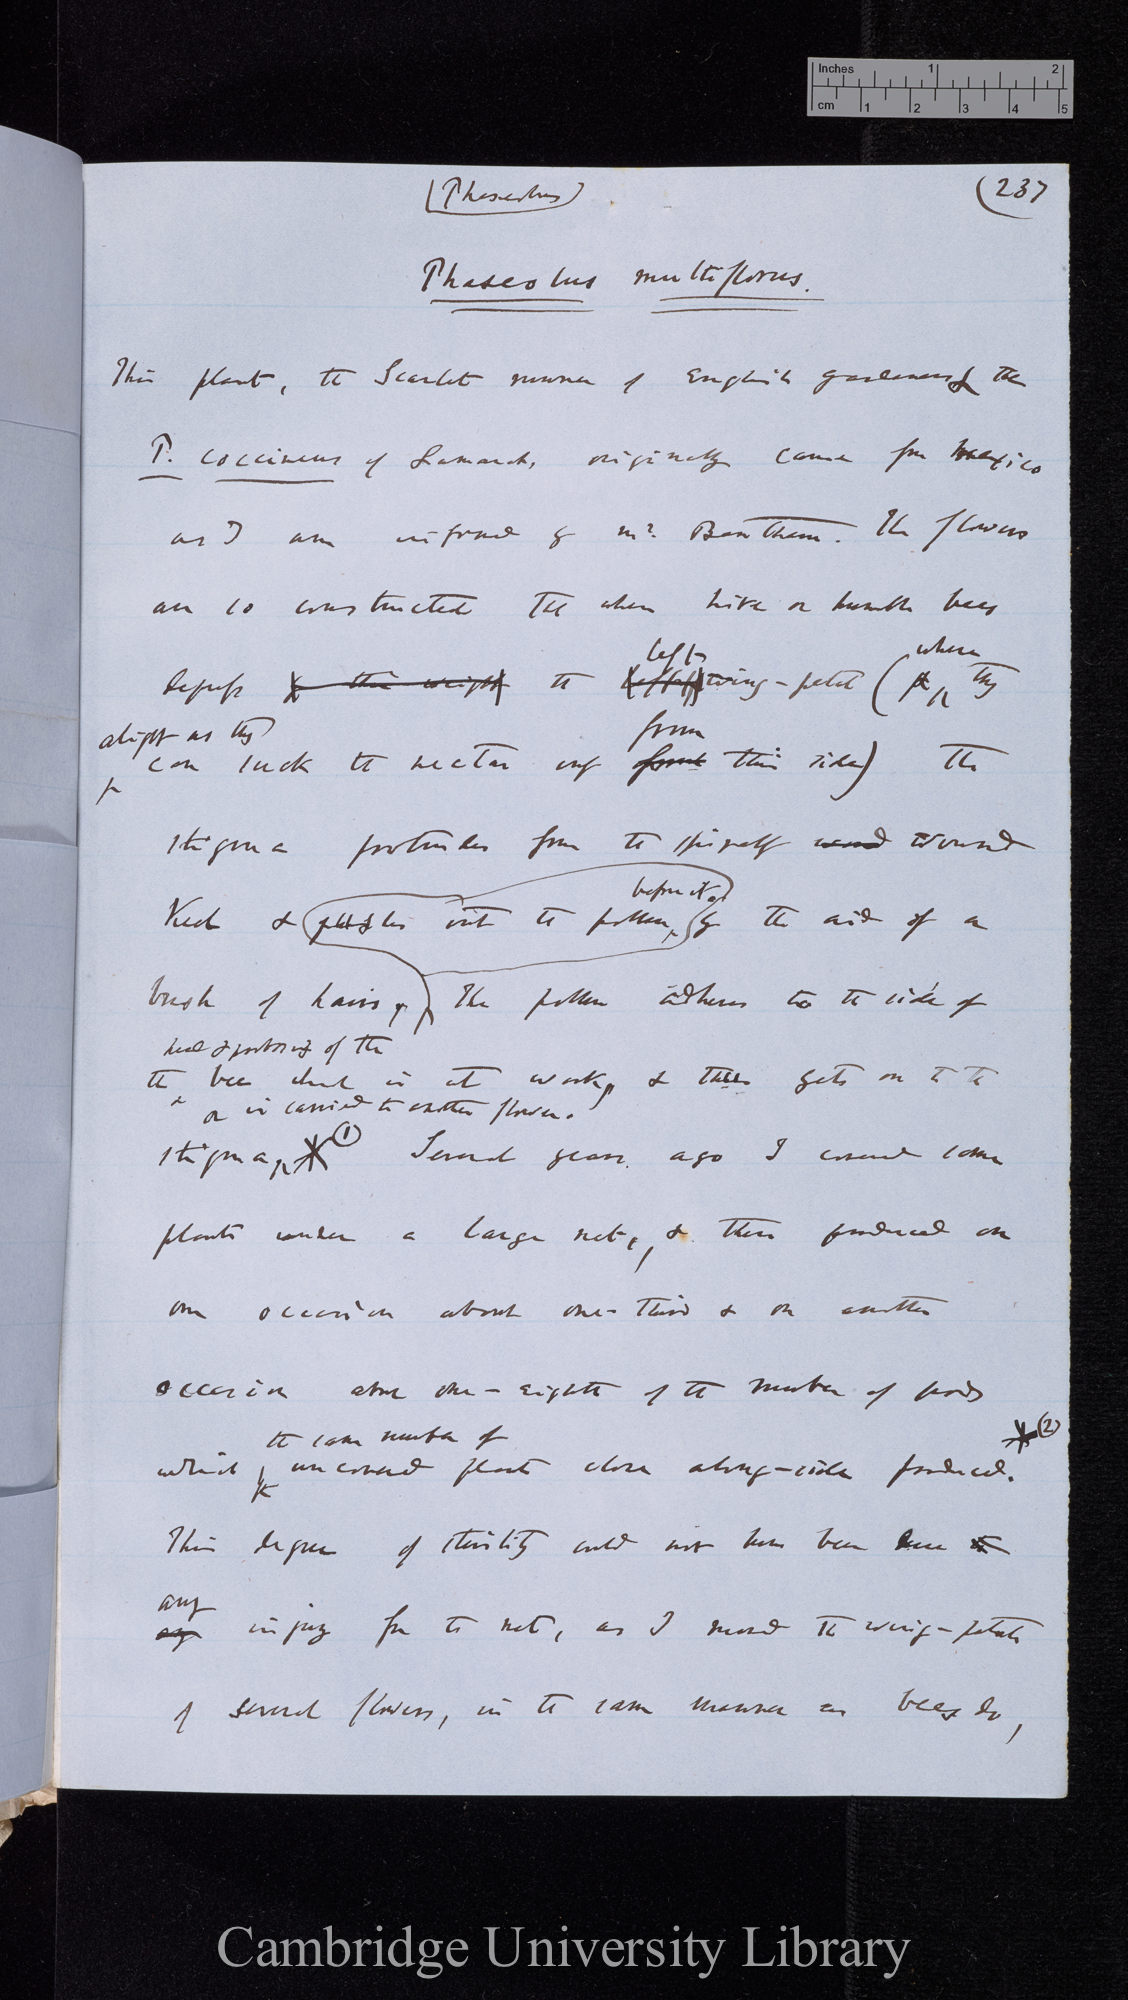 Inches 1 2
cm 1 2 3 4 5
(Phaseolus) (237
Phaseolus multiflorus.
This plant, the Scarlet runner of English gardeners & the
P. coccineus of Lamarck, originally came from Mexico
as I am informed by Mr. Bentham. The flowers
are so constructed that when hive or humble bees
left where
depress the weight the wing-petal (they
alight as they from
can suck the nectar only from this side) the
stigma protrudes from the spirally wound
before it
keel & pushes out the pollen, by the aid of a
brush of hairs, The pollen adheres to the side of
head & proboscis of the
the bee which is at work, & thus gets on to the
or is carried to another flower.
stigma, * (1) Several years ago I covered some
plants under a large net, & these produced on
one occasion about one-third & on another
occasion about one-eighth of the number of pods
the same number of * (2)
which uncovered plants close along-side produced.
This degree of sterility could not have been
any
any injury from the net, as I moved the wing-petals
of several flowers, in the same manner as bees do,
Cambridge University Library